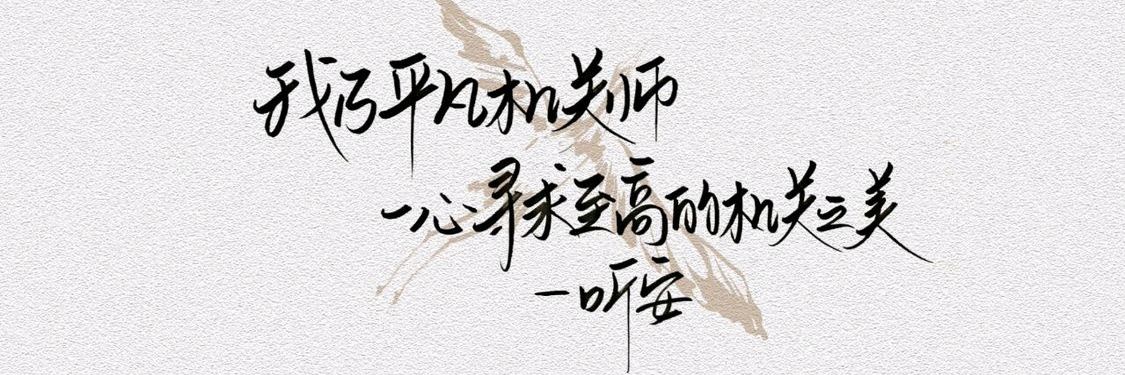 我乃平凡机关师
一心寻求至高的机关之美
一听安